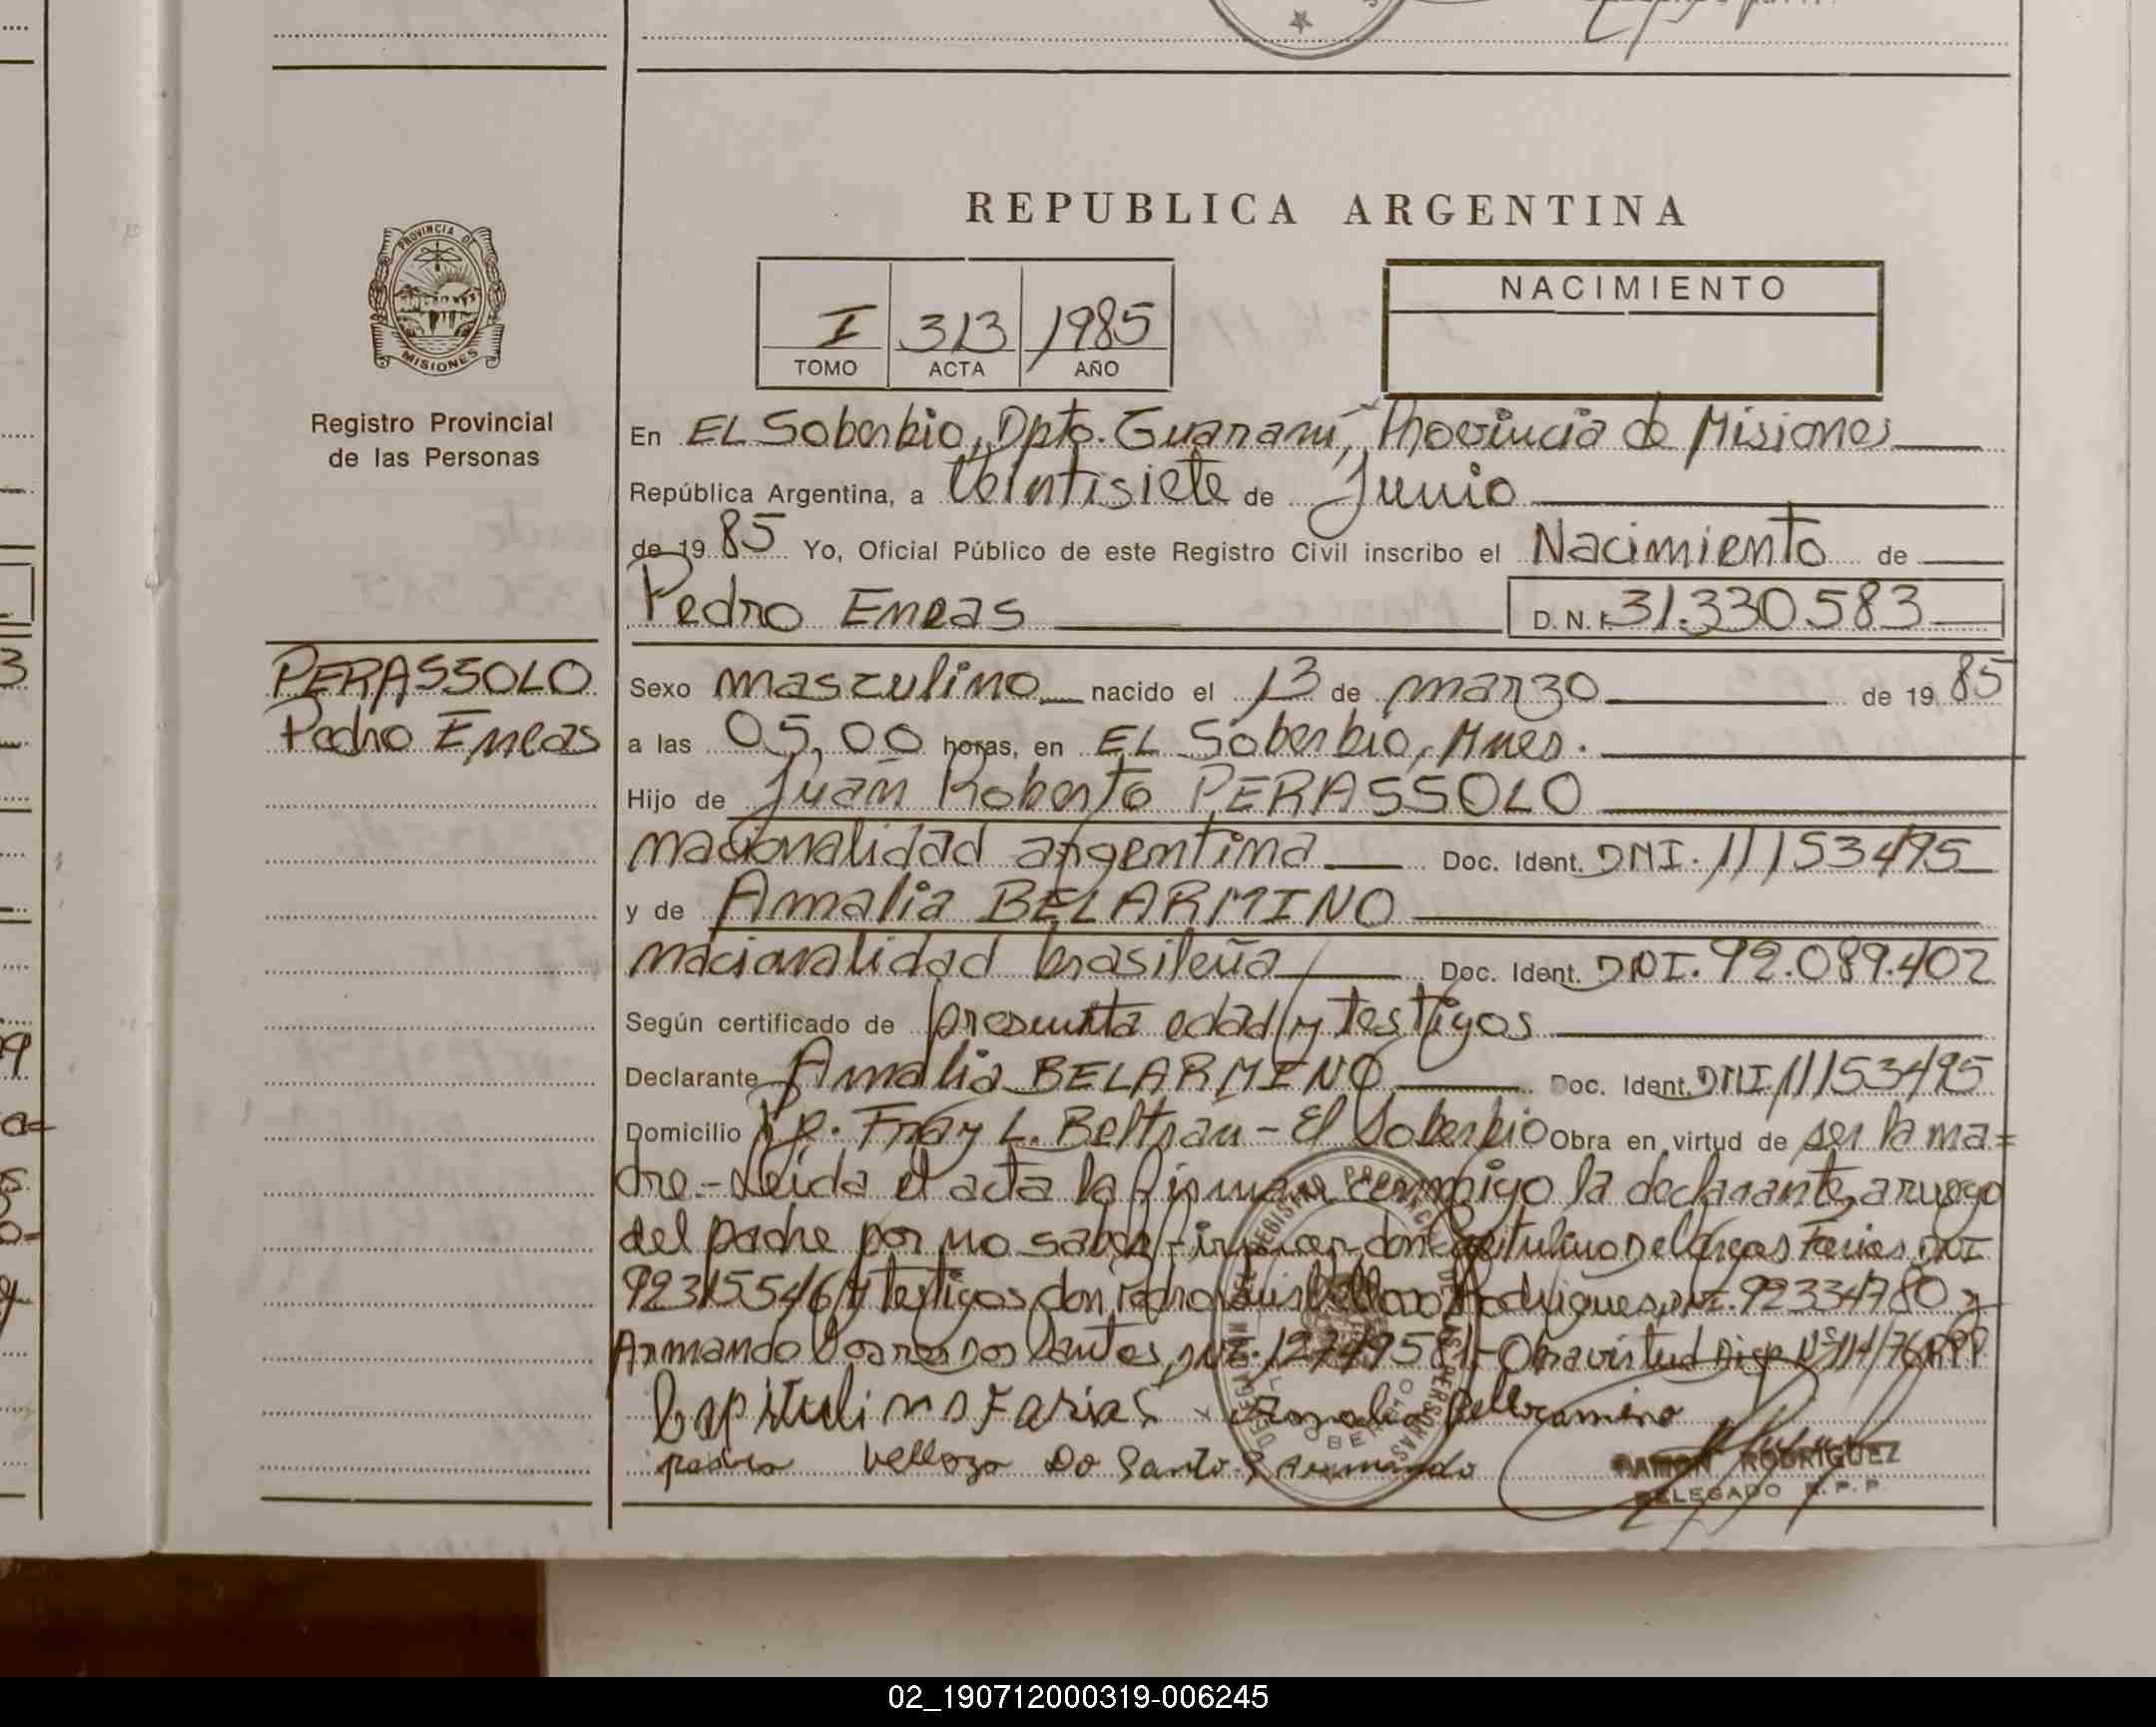 REPUBLICA ARGENTINA
PROVINCIA DE
MISIONES
Registro Provincial
de las Personas
I 313 1985
TOMO ACTA AÑO
NACIMIENTO
En EL Soberbio, Dpto. Guaraní, Provincia de Misiones
República Argentina, a Veintisiete de Junio
de 19 85 Yo, Oficial Público de este Registro Civil inscribo el Nacimiento de
Pedro Eneas D. N. I. 31.330.583
PERASSOLO
Pedro Eneas
Sexo masculino nacido el 13 de marzo de 19 85
a las 05,00 horas, en EL Soberbio, Mnes.
Hijo de Juan Roberto PERASSOLO
nacionalidad argentina Doc. Ident. DNI. 11153495
y de Amalia BELARMINO
nacionalidad brasileña Doc. Ident. DNI. 92.089.402
Según certificado de presunta edad y testigos
Declarante Amalia BELARMINO Doc. Ident. DNI. 11153495
Domicilio Fray L. Beltran - El Soberbio Obra en virtud de ser la ma=
dre.- Leida el acta la firman conmigo la declarante, a ruego
del padre por no saber firmar, don Farias DNI
92315546 y testigos don Pedro Rodrigues, DNI. 92334780 y
Armando dos Santos, DNI. Obra virtud Disp. Nº 114/76 RPP
Capitulino Farias
pedro vellozo Do Santo Armando
RAMON RODRIGUEZ
DELEGADO R.P.P.
02_190712000319-006245